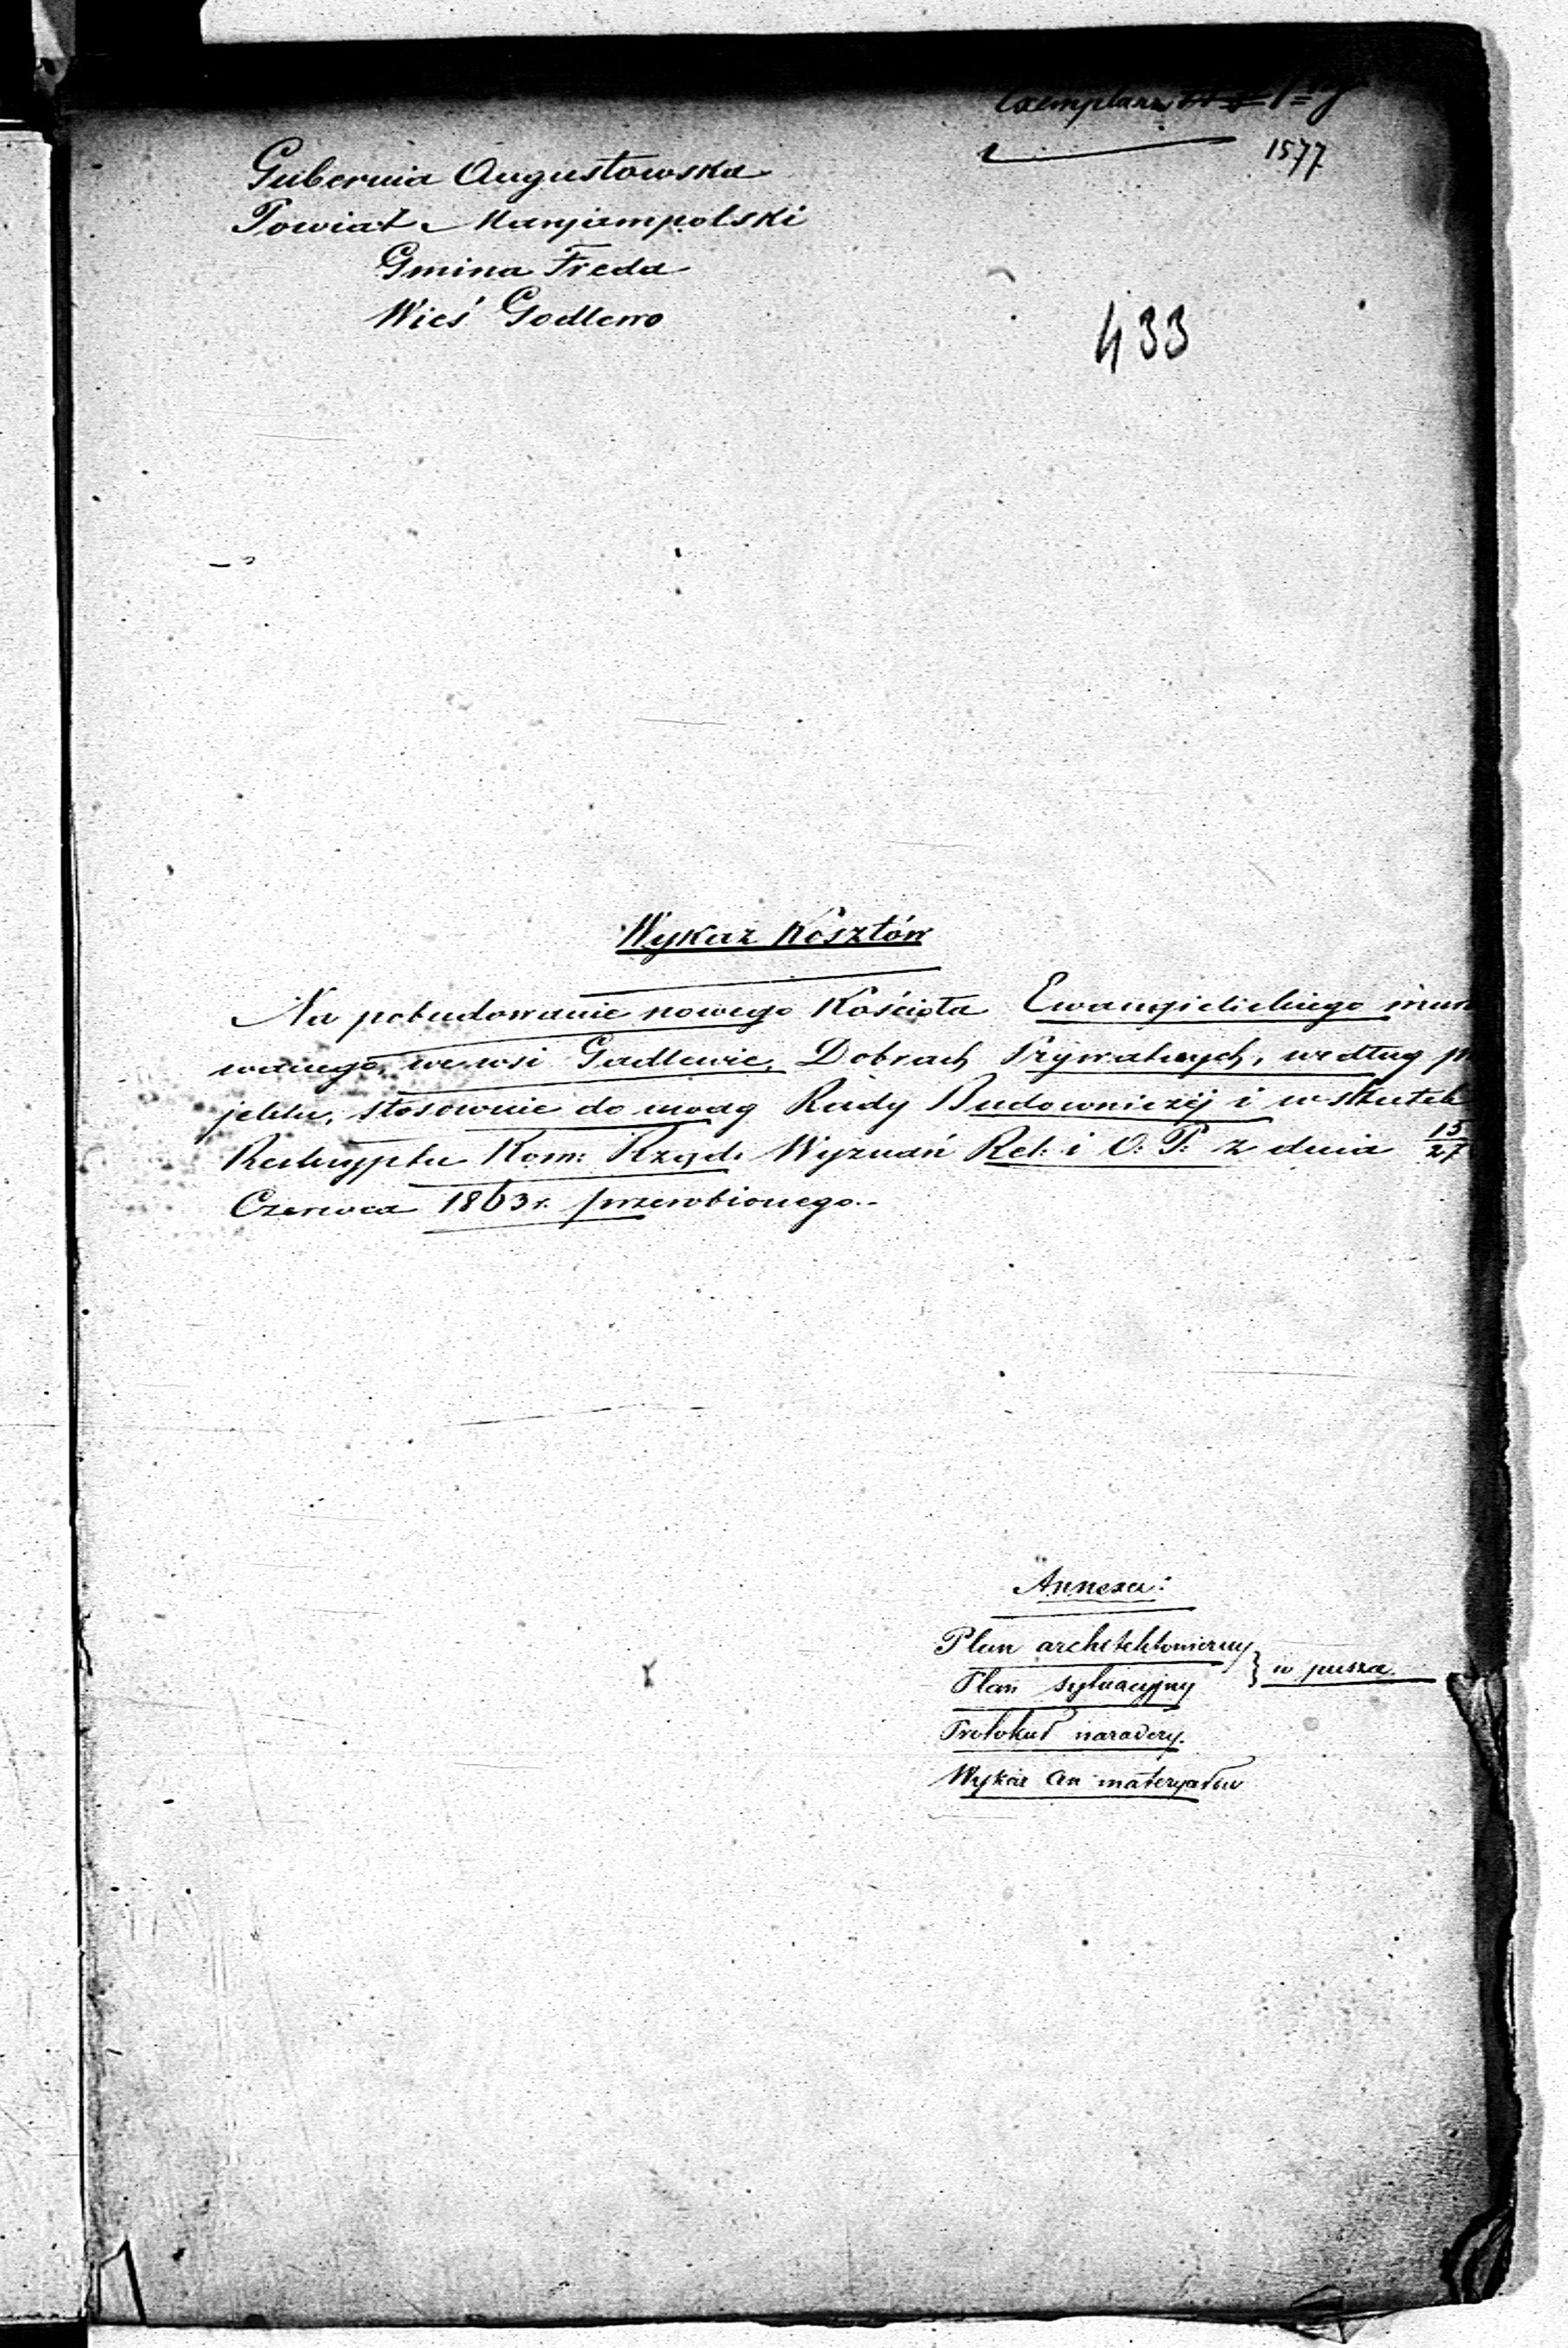 Exemplarz
1577
Gubernia Augustowska
Powiat Maryampolski
Gmina Freda
Wieś Godlewo
433
Wykaz Kosztów
Na pobudowanie nowego Kościoła Ewangielickiego muro
wanego, we wsi Godlewie, Dobrach Prywatnych, według pro
jektu, stosownie do uwag Rady Budowniczéj i w skutek
Reskryptu Kom: Rząd: Wyznań Rel: i O: P: z dnia 15/27
Czerwca 1863 r. przerobionego.-
Annexa:
Plan architektoniczny
Plan sytuacyjny } w puszce.
Protokuł naradczy.
Wykaz cen materyałów